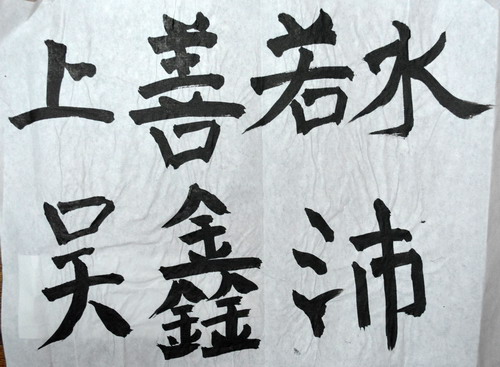 上善若水
吴鑫沛